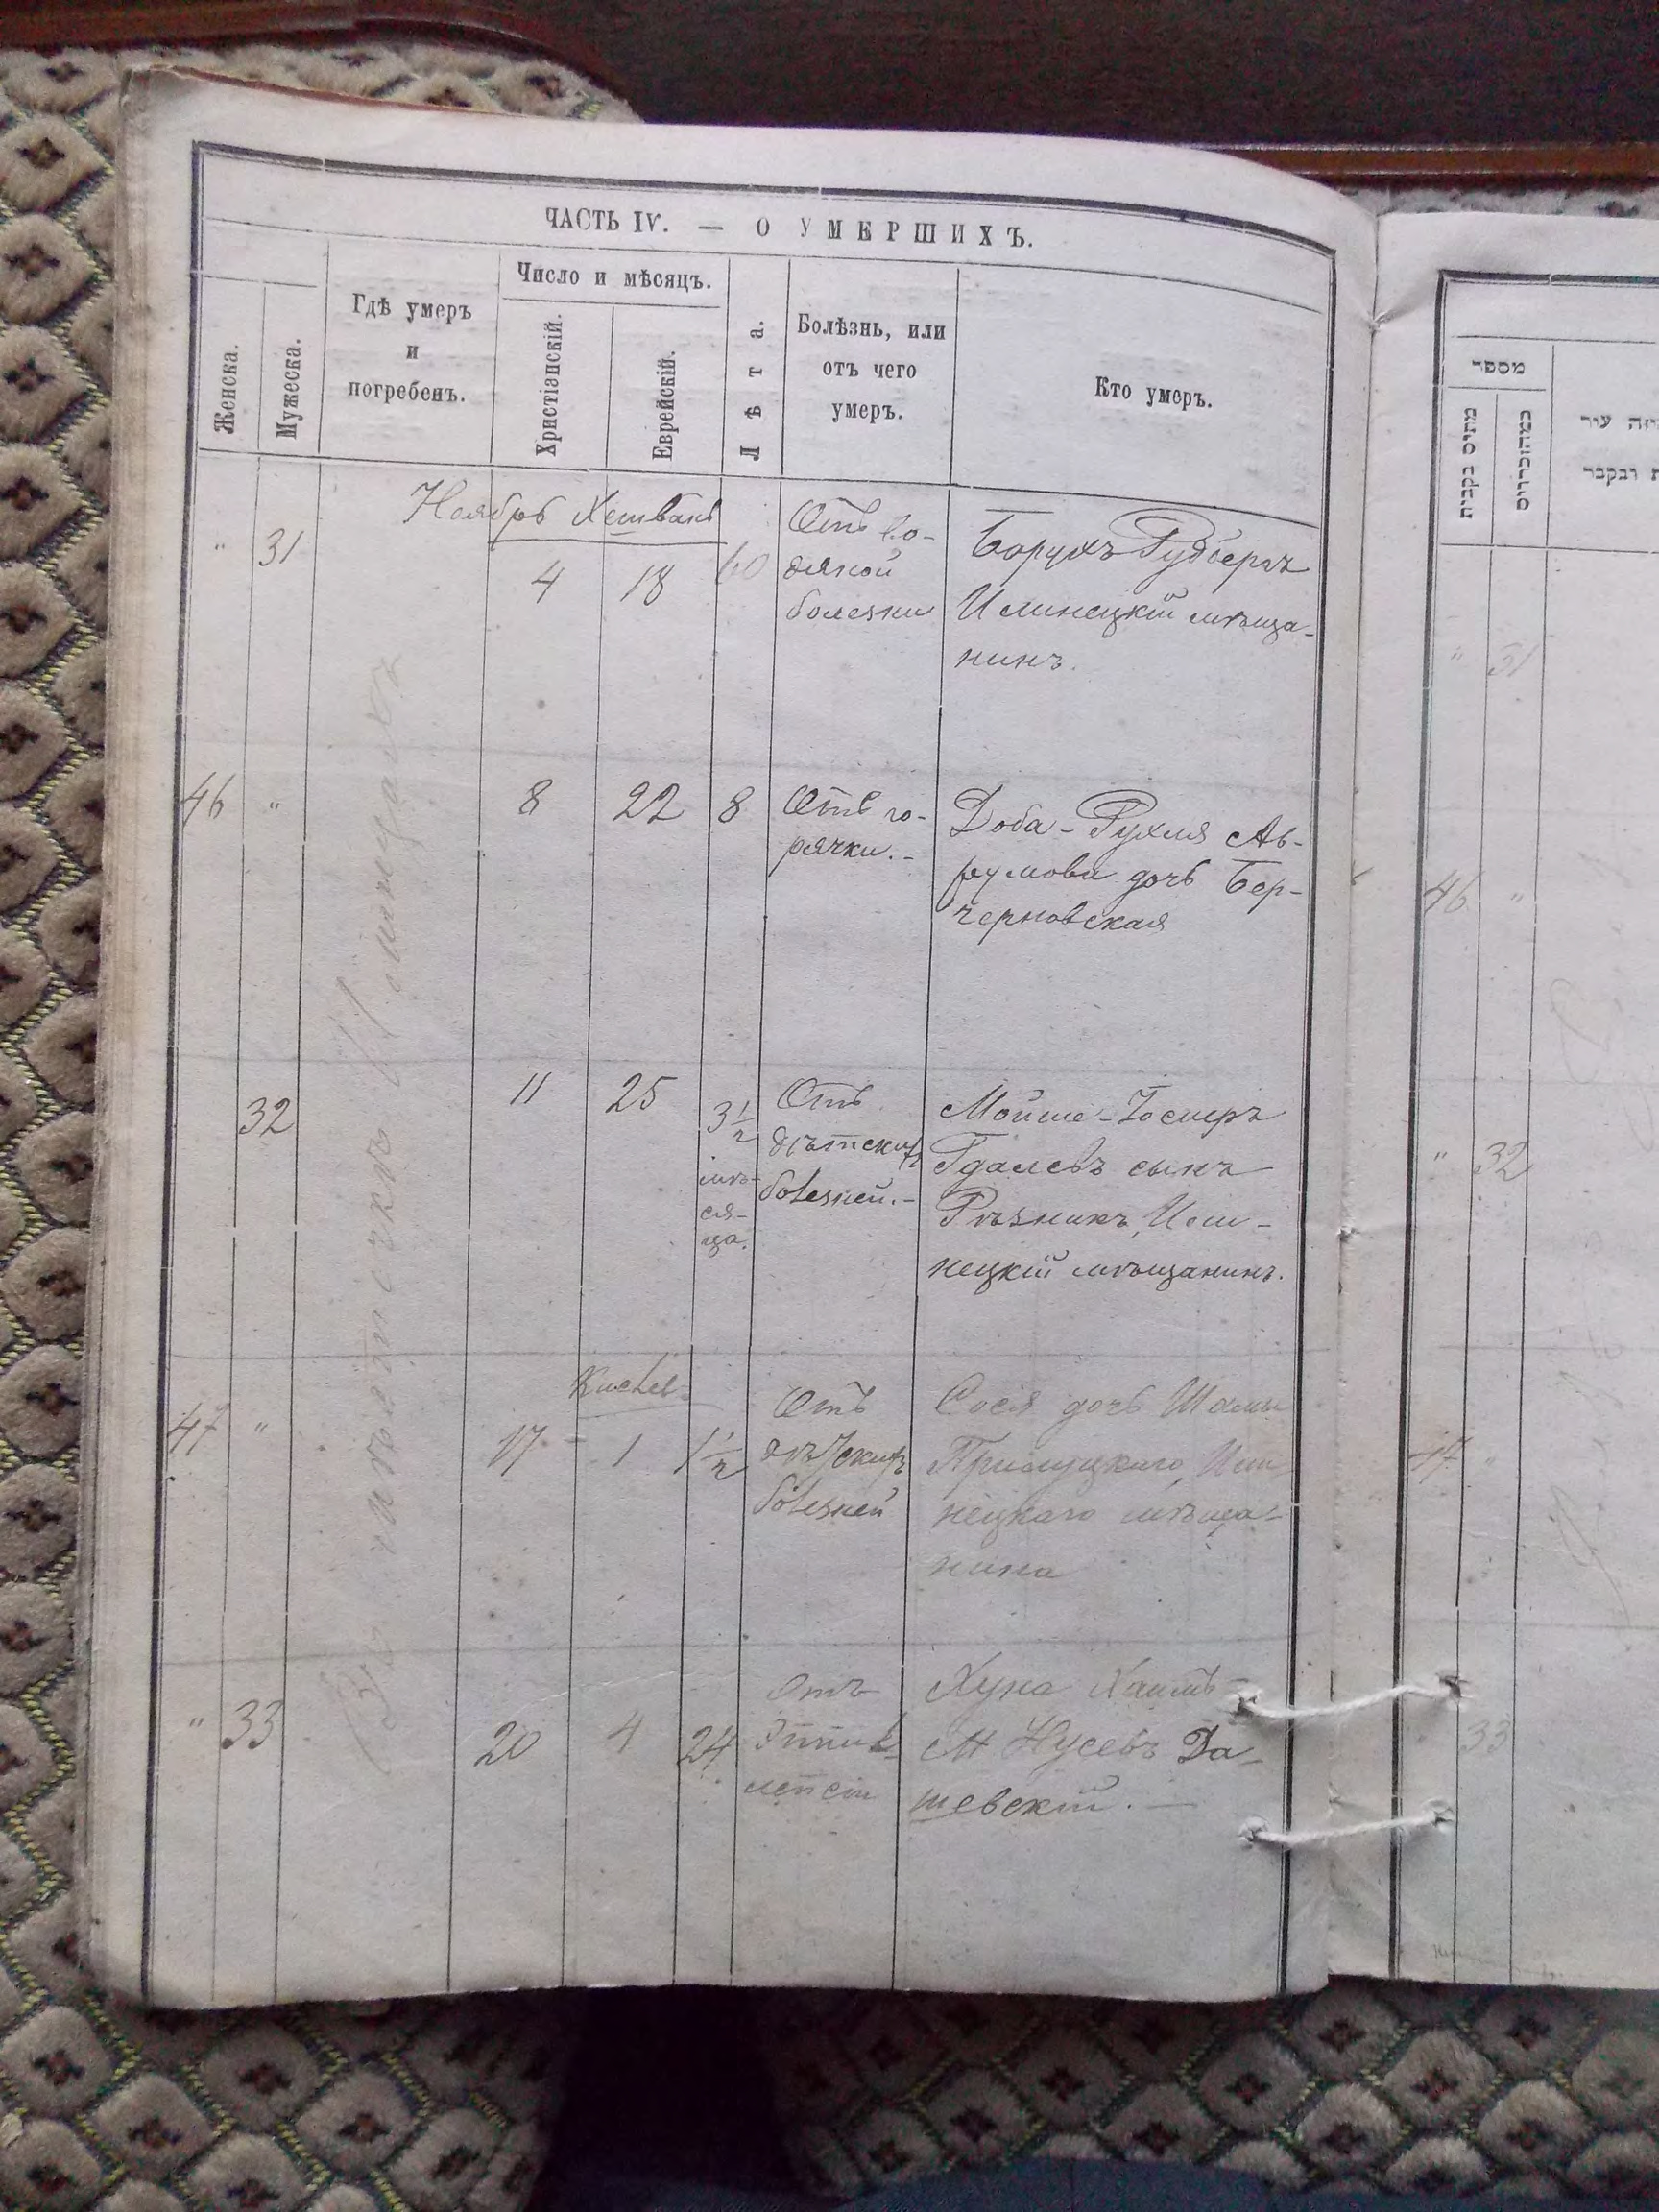 ЧАСТЬ IV. — О УМЕРШИХЪ.
Женска.
Мужеска.
Гдѣ умеръ
и
погребенъ.
Число и мѣсяцъ.
Христіанскій.
Еврейскій.
Лѣта.
Болѣзнь, или
отъ чего
умеръ.
Кто умеръ.
Ноябрь Хешванъ
" 31
4 18 60
Отъ во-
дяной
болезни
Борухъ Рудбергъ
Илинецкій мѣща-
нинъ.
46 "
8 22 8
Отъ го-
рячки.-
Доба-Рухля Ав-
румова дочь Бер-
черновская
32
11 25
3 1/2
мѣ-
ся-
ца.
Отъ
дѣтскихъ
болезней.-
Мойше-Іосперъ
Гдалевъ сынъ
Рѣзникъ, Или-
нецкій мѣщанинъ.
Кислев
47 "
17 - 1 1 1/2
Отъ
дѣтскихъ
болезней
Сося дочь Шамы
Прилуцкаго, Или-
нецкаго мѣща-
нина
" 33
20 4 24
Отъ
Эпили-
лепсіи
Хуна Хаимъ-
М Нусевъ Да-
шевскій.—
Въ мѣстечкѣ Илинцахъ
מספר
מתים נקבות
" 31
46 "
" 32
47 "
33